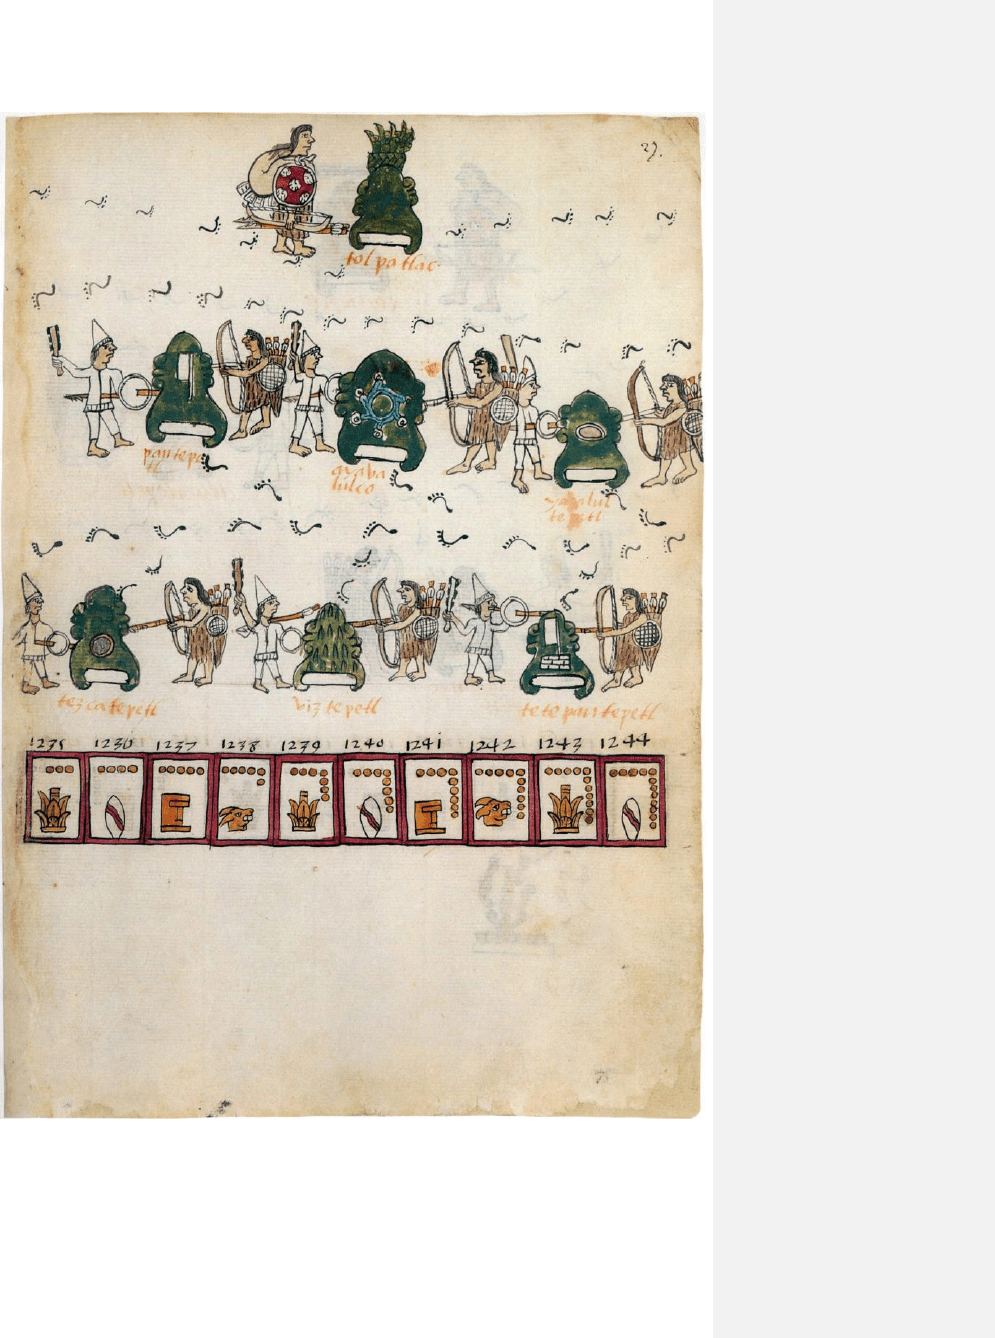 29.
tolpatlac.
pantepe
tl
tepetl
tezcatepetl
viztepetl
tetepantepetl
1235 1236 1237 1238 1239 1240 1241 1242 1243 1244